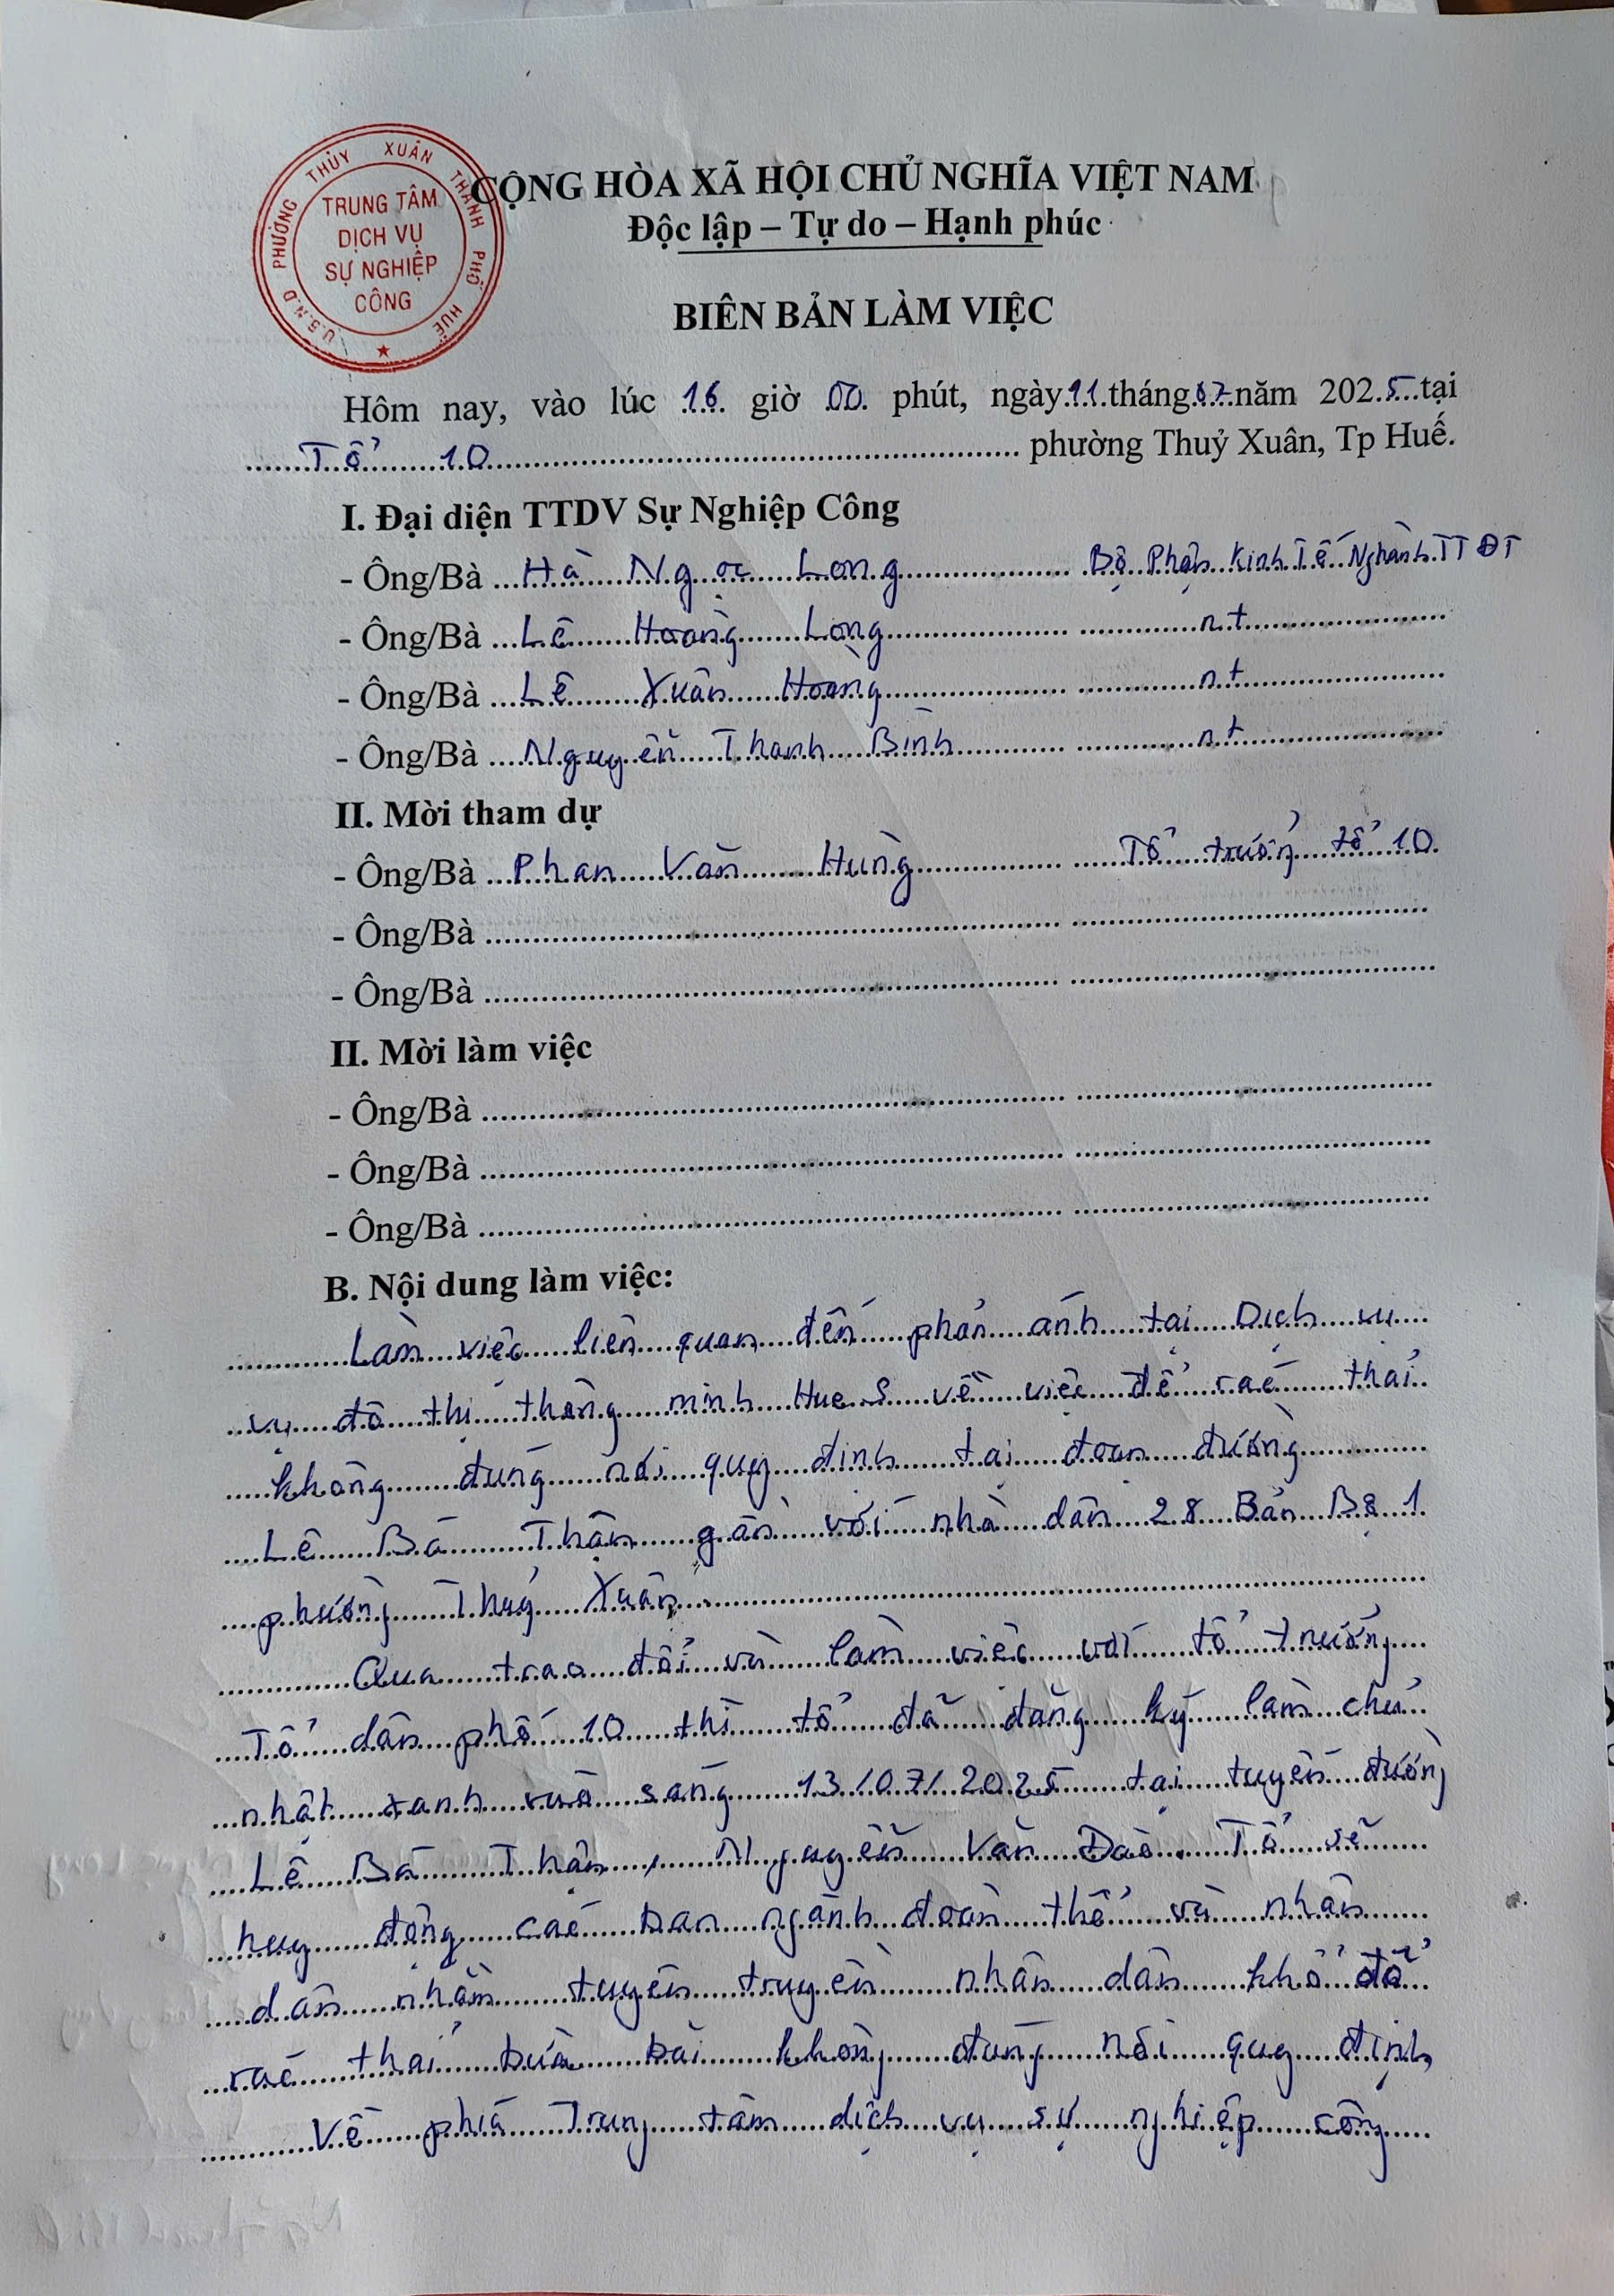 U.B.N.D PHƯỜNG THỦY XUÂN THÀNH PHỐ HUẾ
TRUNG TÂM
DỊCH VỤ
SỰ NGHIỆP
CÔNG
CỘNG HÒA XÃ HỘI CHỦ NGHĨA VIỆT NAM
Độc lập – Tự do – Hạnh phúc
BIÊN BẢN LÀM VIỆC
Hôm nay, vào lúc 16 giờ 00 phút, ngày 11 tháng 07 năm 2025 tại
Tổ 10 phường Thuỷ Xuân, Tp Huế.
I. Đại diện TTDV Sự Nghiệp Công
- Ông/Bà Hà Ngọc Long Bộ Phận Kinh Tế Nghành TTĐT
- Ông/Bà Lê Hoàng Long nt
- Ông/Bà Lê Xuân Hoàng nt
- Ông/Bà Nguyễn Thanh Bình nt
II. Mời tham dự
- Ông/Bà Phan Văn Hùng Tổ trưởng tổ 10
- Ông/Bà
- Ông/Bà
II. Mời làm việc
- Ông/Bà
- Ông/Bà
- Ông/Bà
B. Nội dung làm việc:
Làm việc liên quan đến phản ánh tại Dịch vụ
vụ đô thị thông minh Hue S về việc để rác thải
không đúng nơi quy định tại đoạn đường
Lê Bá Thận gần với nhà dân 28 Bản Bộ 1
phường Thuỷ Xuân
Qua trao đổi và làm việc với tổ trưởng
Tổ dân phố 10 thì tổ đã đăng ký làm chủ
nhật xanh vào sáng 13/07/2025 tại tuyến đường
Lê Bá Thận, Nguyễn Văn Đào. Tổ sẽ
huy động các ban ngành đoàn thể và nhân
dân nhằm tuyên truyền nhân dân khổ đổ
rác thải bừa bãi không đúng nơi quy định
Về phía Trung tâm dịch vụ sự nghiệp công